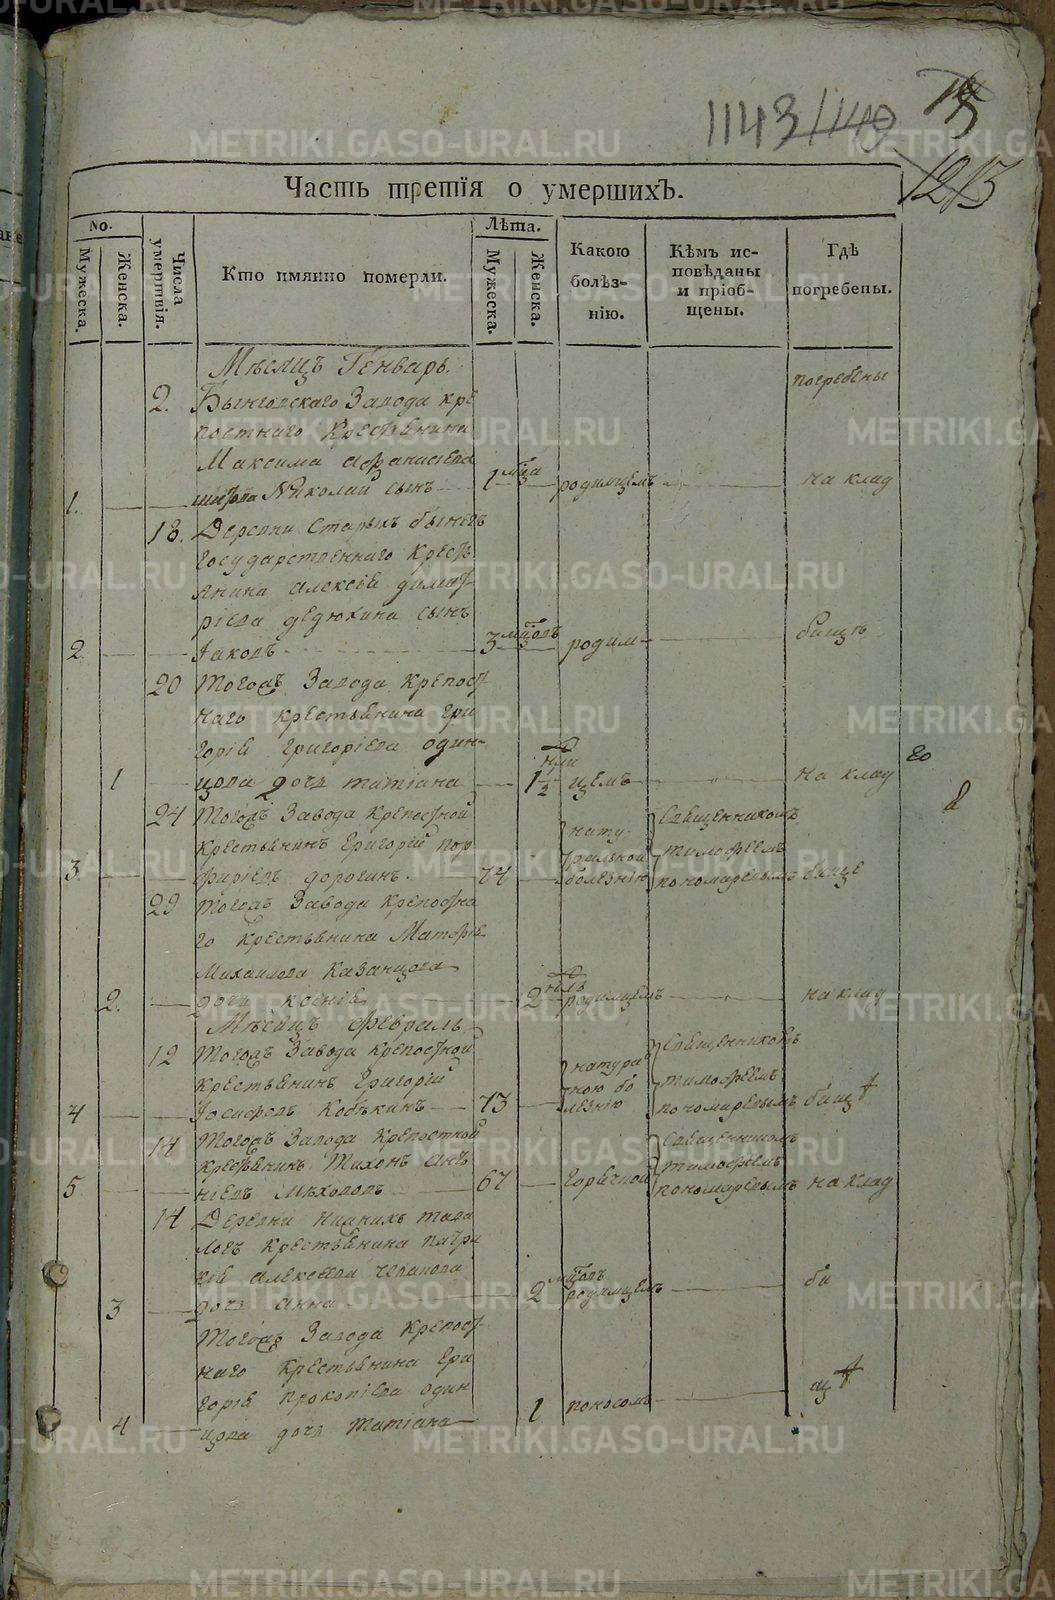 1143 1140
1213
Часть третія о умершихъ.
No.
Мужеска.
Женска.
Числа умертвія.
Кто имянно померли.
Лѣта.
Мужеска.
Женска.
Какою болѣз-
нію.
Кѣмъ ис-
повѣданы
и пріоб-
щены.
Гдѣ
погребены.
Мѣсяцъ Генварь.
погребены
2. Бынговскаго Завода кре
постнаго Крестьянина
Максима Афанасьева
1. Николай сынъ 1 мца родимцемъ на клад
18. Деревни Старыхъ бынегъ
государственнаго Крестъ
янина Алексея димит
ріева дедюхина сынъ
2. Іаковъ 3 мцовъ родим бищѣ
20 Тогожъ Завода Крепост
наго Крестьянина Гри
горія Григоріева один
1 цова дочь татіана 1 1/2 нли цемъ на клад
24 Тогожъ Завода Крепостной
Крестьянинъ Григорій Пор
3. фиріевъ дорогинъ. 74 натуральной болезнію Священникомъ тимофеемъ пономаревымъ бище
29 Тогожъ Завода Крепостна
го Крестьянина
Михаилова Казанцова
2. дочь ксенія 2 нель родимцемъ на клад
Мѣсяцъ Февраль
12 Тогожъ Завода Крепостной
Крестьянинъ Григорій
4 Іосифовъ 73 натуральною болезнію Священникомъ тимофеемъ пономаревымъ бищѣ
14 Тогожъ Завода Крепостной
Крестьянинъ Тихонъ Ана
5 ніевъ Мѣховъ 67 Горячкой Священникомъ тимофеемъ пономаревымъ на клад
14 Деревни нижнихъ тава
логъ Крестьянина патри
кія Алексеева Черанова
3 дочь Анна 2 мцовъ родимцемъ би
Тогожъ Завода Крепост
наго Крестьянина Гри
горія Прокопіева один
4 цова дочь Татіана 1 поносомъ щѣ
METRIKI.GASO-URAL.RU